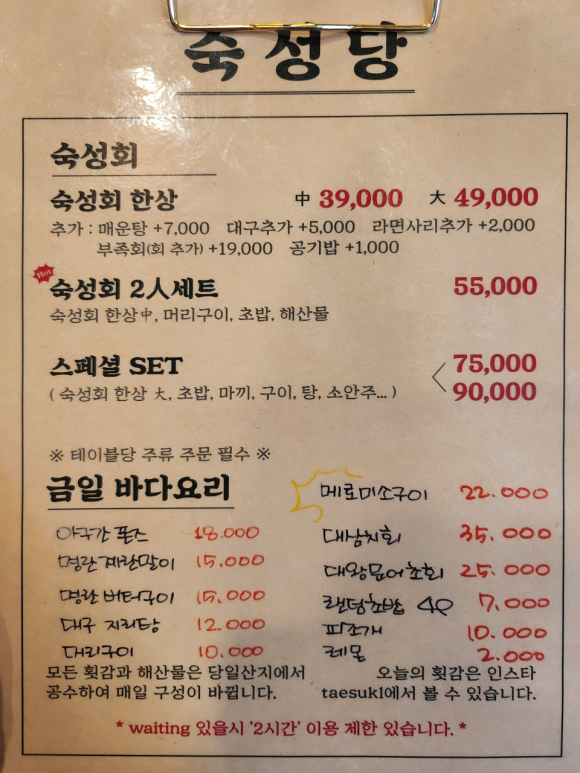 숙성당
숙성회
숙성회 한상 中 39,000 大 49,000
추가 : 매운탕 +7,000 대구추가 +5,000 라면사리추가 +2,000
부족회(회 추가) +19,000 공기밥 +1,000
Hot
숙성회 2人세트 55,000
숙성회 한상中, 머리구이, 초밥, 해산물
스페셜 SET 75,000
( 숙성회 한상 大, 초밥, 마끼, 구이, 탕, 소안주... ) 90,000
※ 테이블당 주류 주문 필수 ※
금일 바다요리
아구간 폰즈 18.000
명란 계란말이 15.000
명란 버터구이 15.000
대구 지리탕 12.000
머리구이 10.000
메로미소구이 22.000
대삼치회 35.000
대왕문어초회 25.000
랜덤초밥 4P 7.000
피조개 10.000
레몬 2.000
모든 횟감과 해산물은 당일산지에서
공수하여 매일 구성이 바뀝니다.
오늘의 횟감은 인스타
taesuk1에서 볼 수 있습니다.
* waiting 있을시 '2시간' 이용 제한 있습니다. *